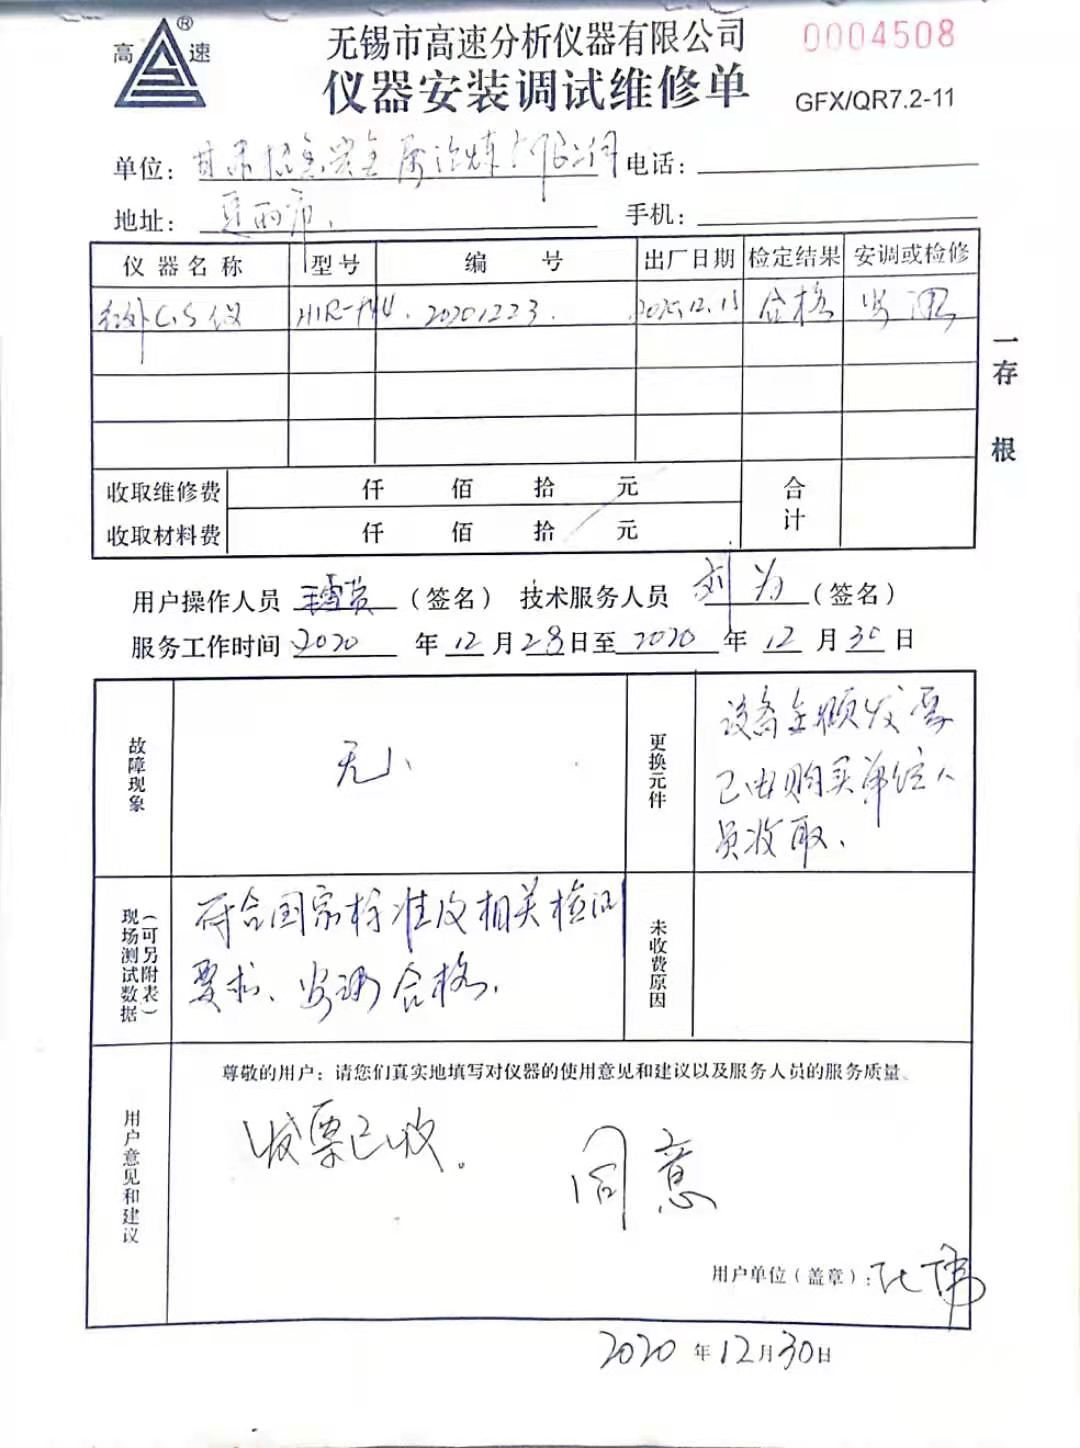 高 ® 速
无锡市高速分析仪器有限公司
0004508
仪器安装调试维修单
GFX/QR7.2-11
单位: 甘肃 金属冶炼有限公司 电话:
地址: 手机:
仪器名称 型号 编号 出厂日期 检定结果 安调或检修
红外C,S仪 HIR-944. 20201223. 12.15 合格 安调
一存根
收取维修费 仟 佰 拾 元 合计
收取材料费 仟 佰 拾 元
用户操作人员 (签名) 技术服务人员 刘为 (签名)
服务工作时间 2020 年 12 月 28 日至 2020 年 12 月 30 日
故障现象
无、
更换元件
设备全额发票
已由购买单位人
员收取、
现场测试数据
(可另附表)
符合国家标准及相关检测
要求、安调合格,
未收费原因
用户意见和建议
尊敬的用户: 请您们真实地填写对仪器的使用意见和建议以及服务人员的服务质量。
发票已收。
同意
用户单位(盖章):
2020 年 12 月 30 日